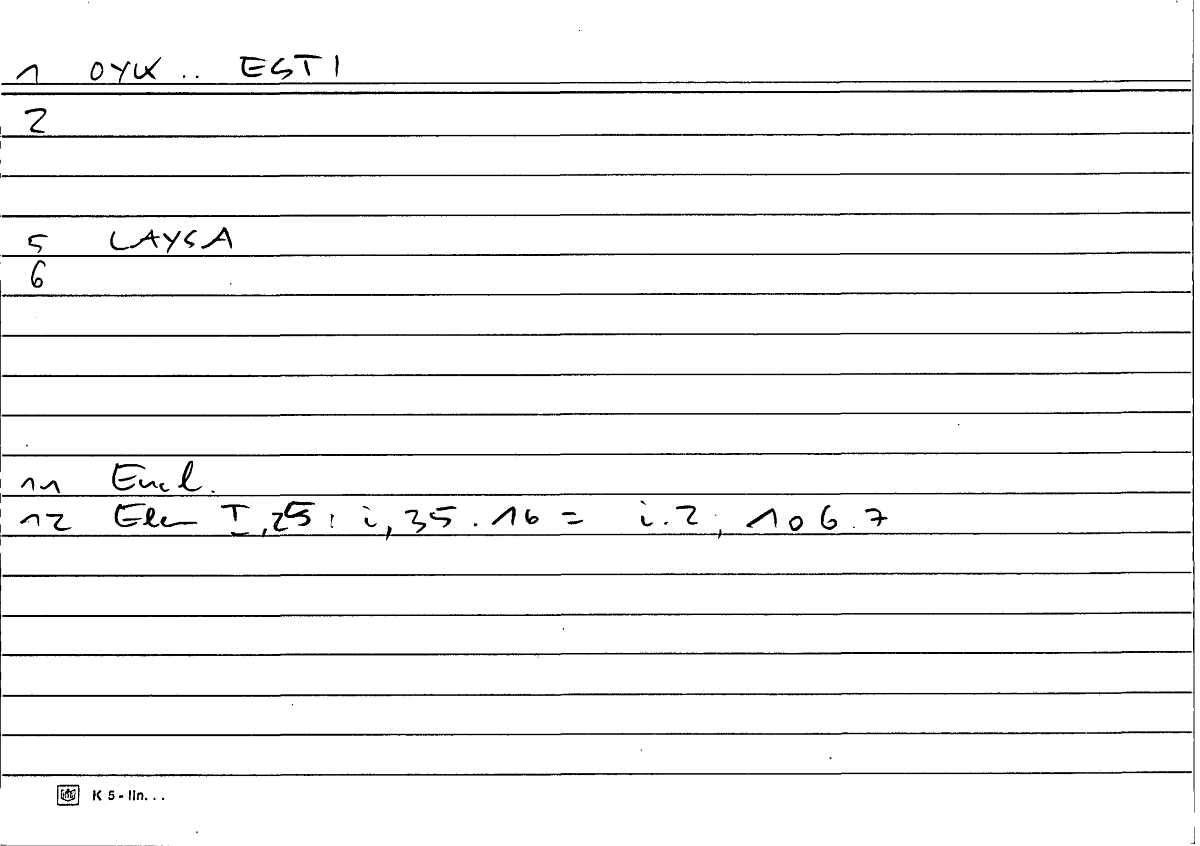 1 OYK .. ESTI
2
5 LAYSA
6
11 Eucl.
12 Elem I,25: i,35.16 = i.2, 106.7
K 5 - lin...